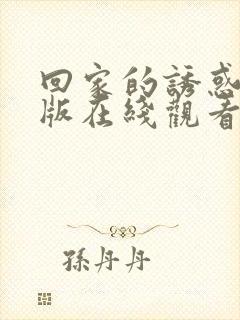 回家的誘惑
版在綫觀看
孫丹丹